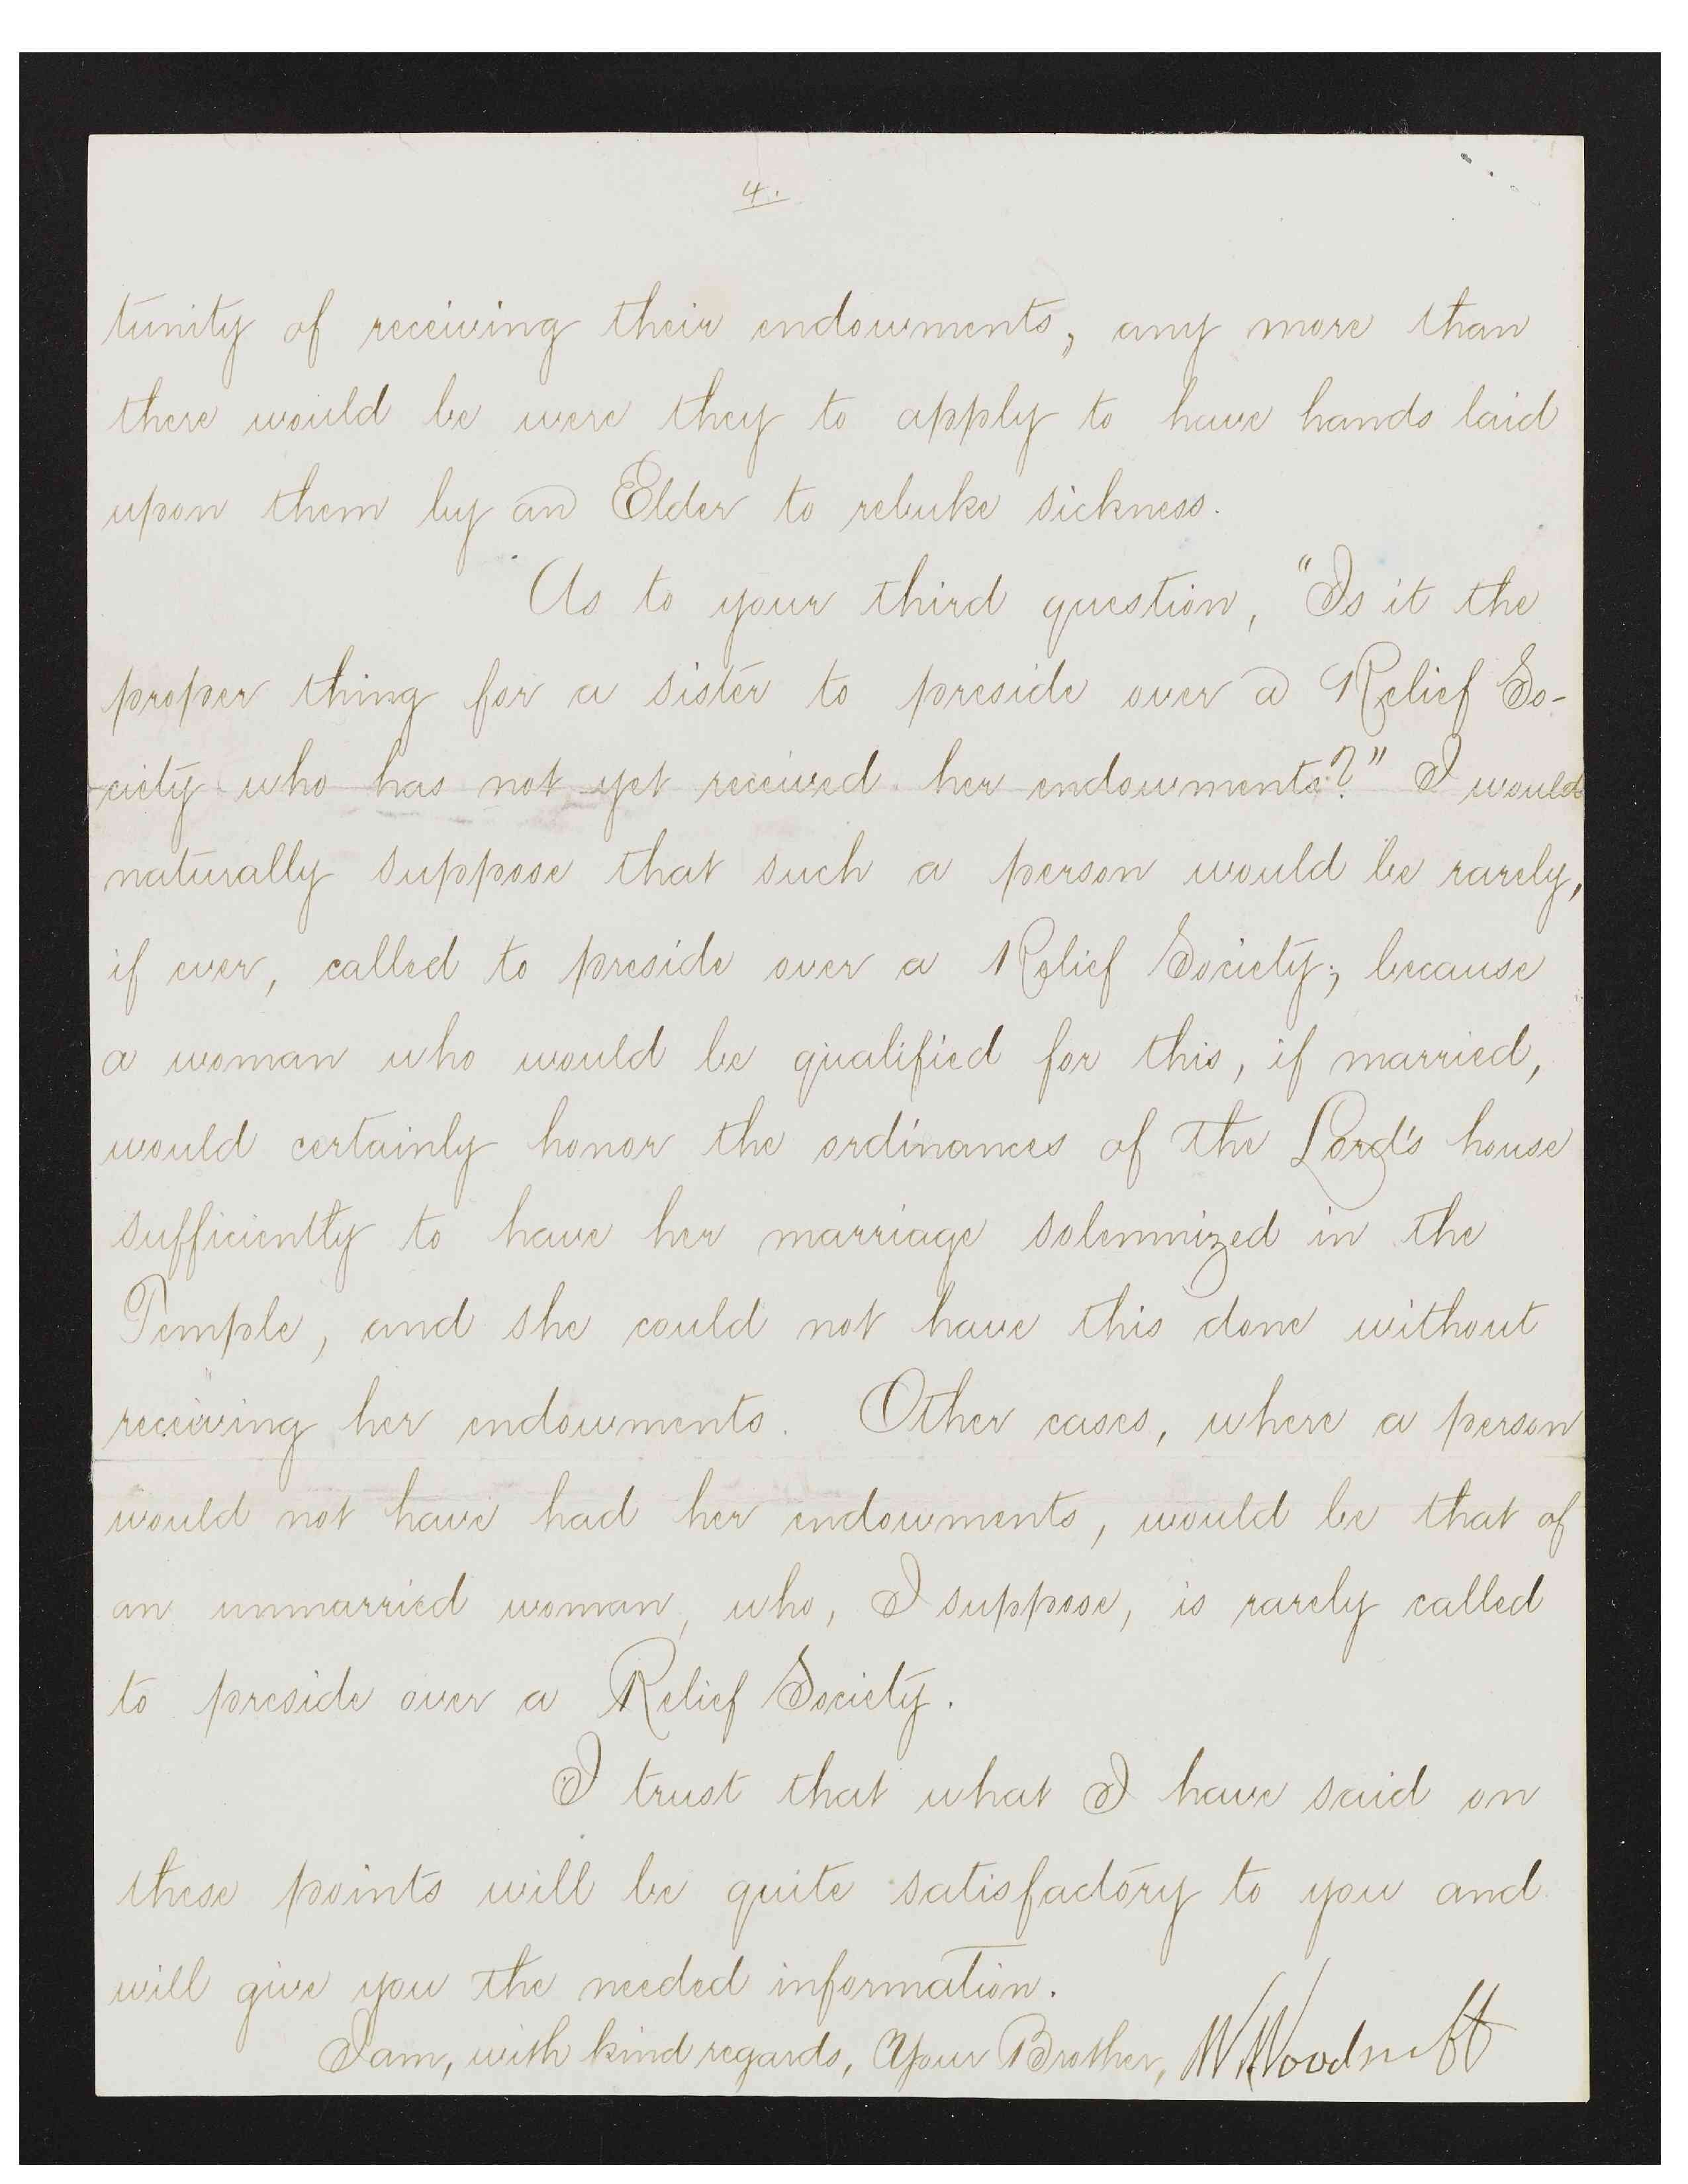 4.
tunity of receiving their endowments, any more than
there would be were they to apply to have hands laid
upon them by an Elder to rebuke sickness.
As to your third question, "Is it the
proper thing for a sister to preside over a Relief So-
ciety who has not yet received her endowments?" I would
naturally suppose that such a person would be rarely,
if ever, called to preside over a Relief Society; because
a woman who would be qualified for this, if married,
would certainly honor the ordinances of the Lord's house
sufficiently to have her marriage solemnized in the
Temple, and she could not have this done without
receiving her endowments. Other cases, where a person
would not have had her endowments, would be that of
an unmarried woman, who, I suppose, is rarely called
to preside over a Relief Society.
I trust that what I have said on
these points will be quite satisfactory to you and
will give you the needed information.
I am, with kind regards, Your Brother, W. Woodruff